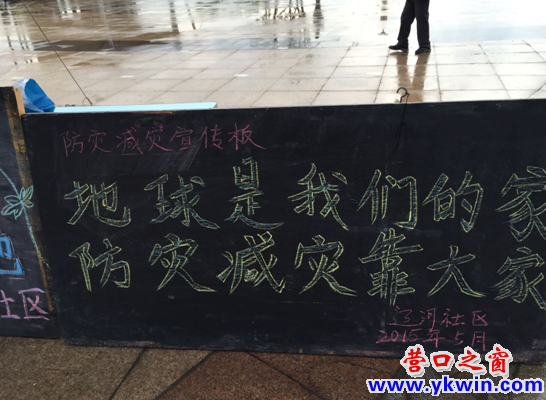 防灾减灾宣传板
地球是我们的家
防灾减灾靠大家
辽河社区
2015年5月
社区
营口之窗
www.ykwin.com